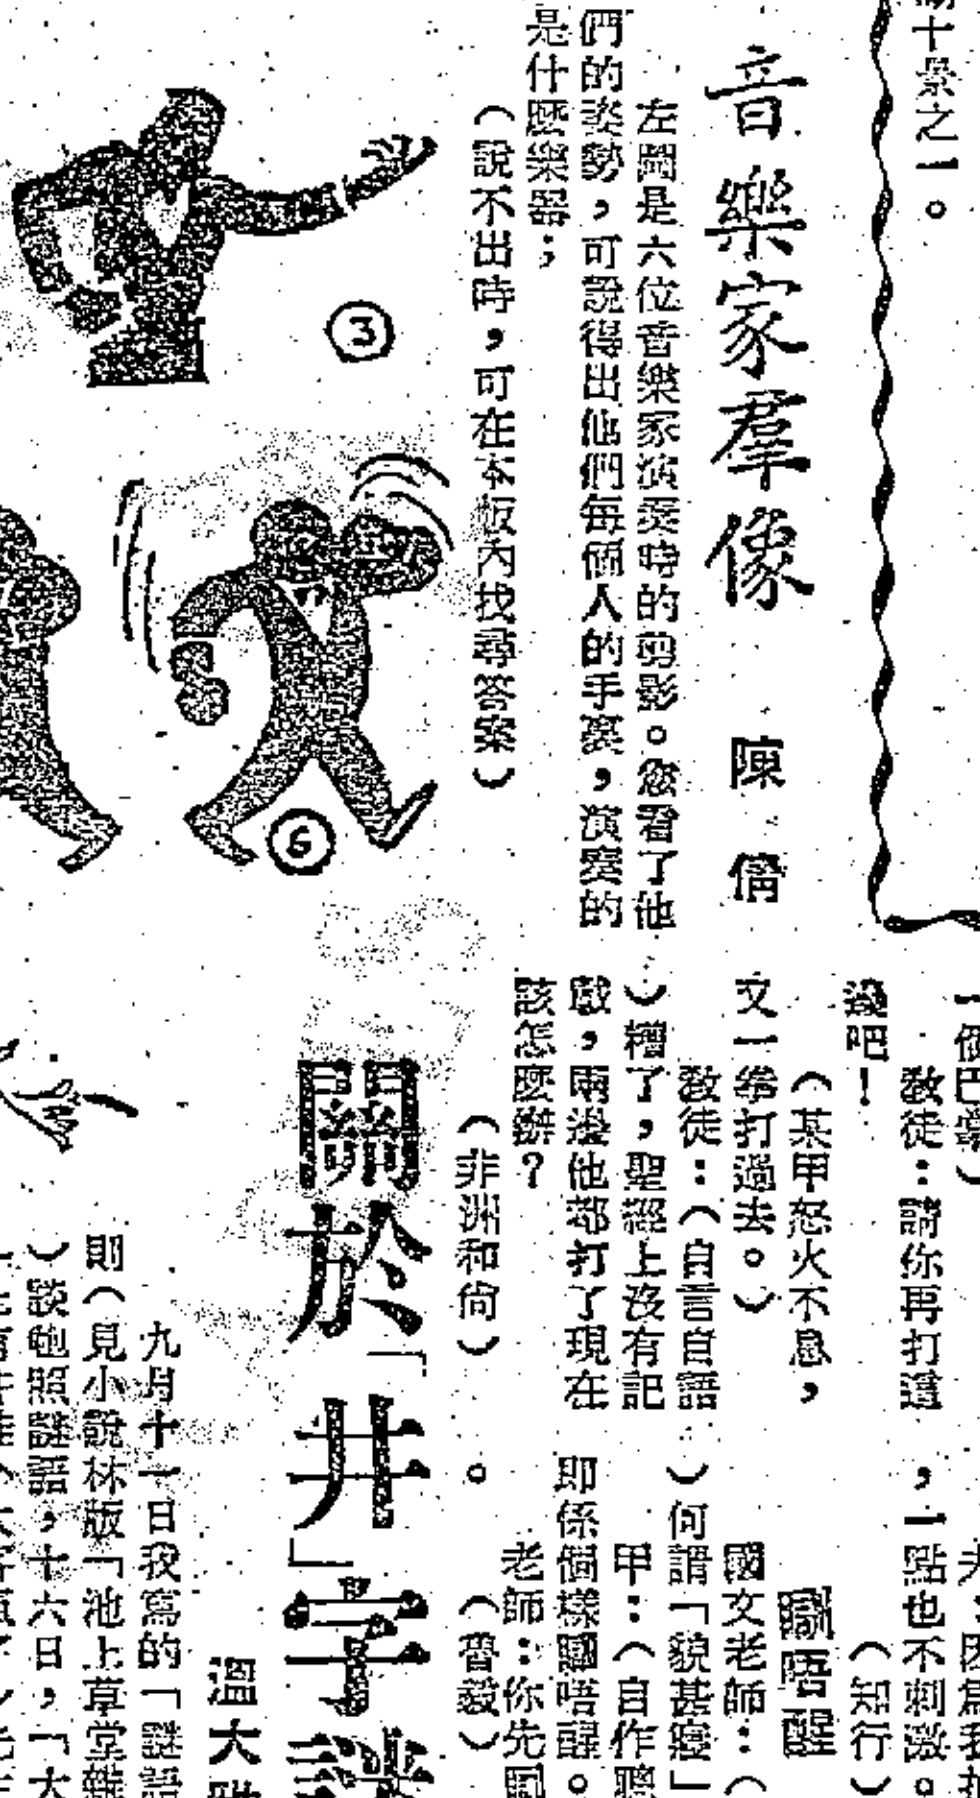 十景之一。
音樂家羣像
陳倩
左圖是六位音樂家演奏時的剪影。您看了他
們的姿勢，可說得出他們每個人的手裏，演奏的
是什麼樂器；
（說不出時，可在本版內找尋答案）
③
⑥
教徒：請你再打這
邊吧！
（某甲怒火不息，
又一拳打過去。）
教徒：（自言自語
）糟了，聖經上沒有記
戲，兩邊他都打了現在
該怎麼辦？
（非洲和尙）
，一點也不刺激。
（知行）
瞓唔醒
國文老師：（
）何謂「貌甚寢」
甲：（自作聰
即係個樣瞓唔醒。
老師：你先瞓
。
（魯毅）
關於「井」字謎
溫大
九月十一日我寫的「謎語
則（見小說林版「池上草堂
）談
照謎語，十六日，「大